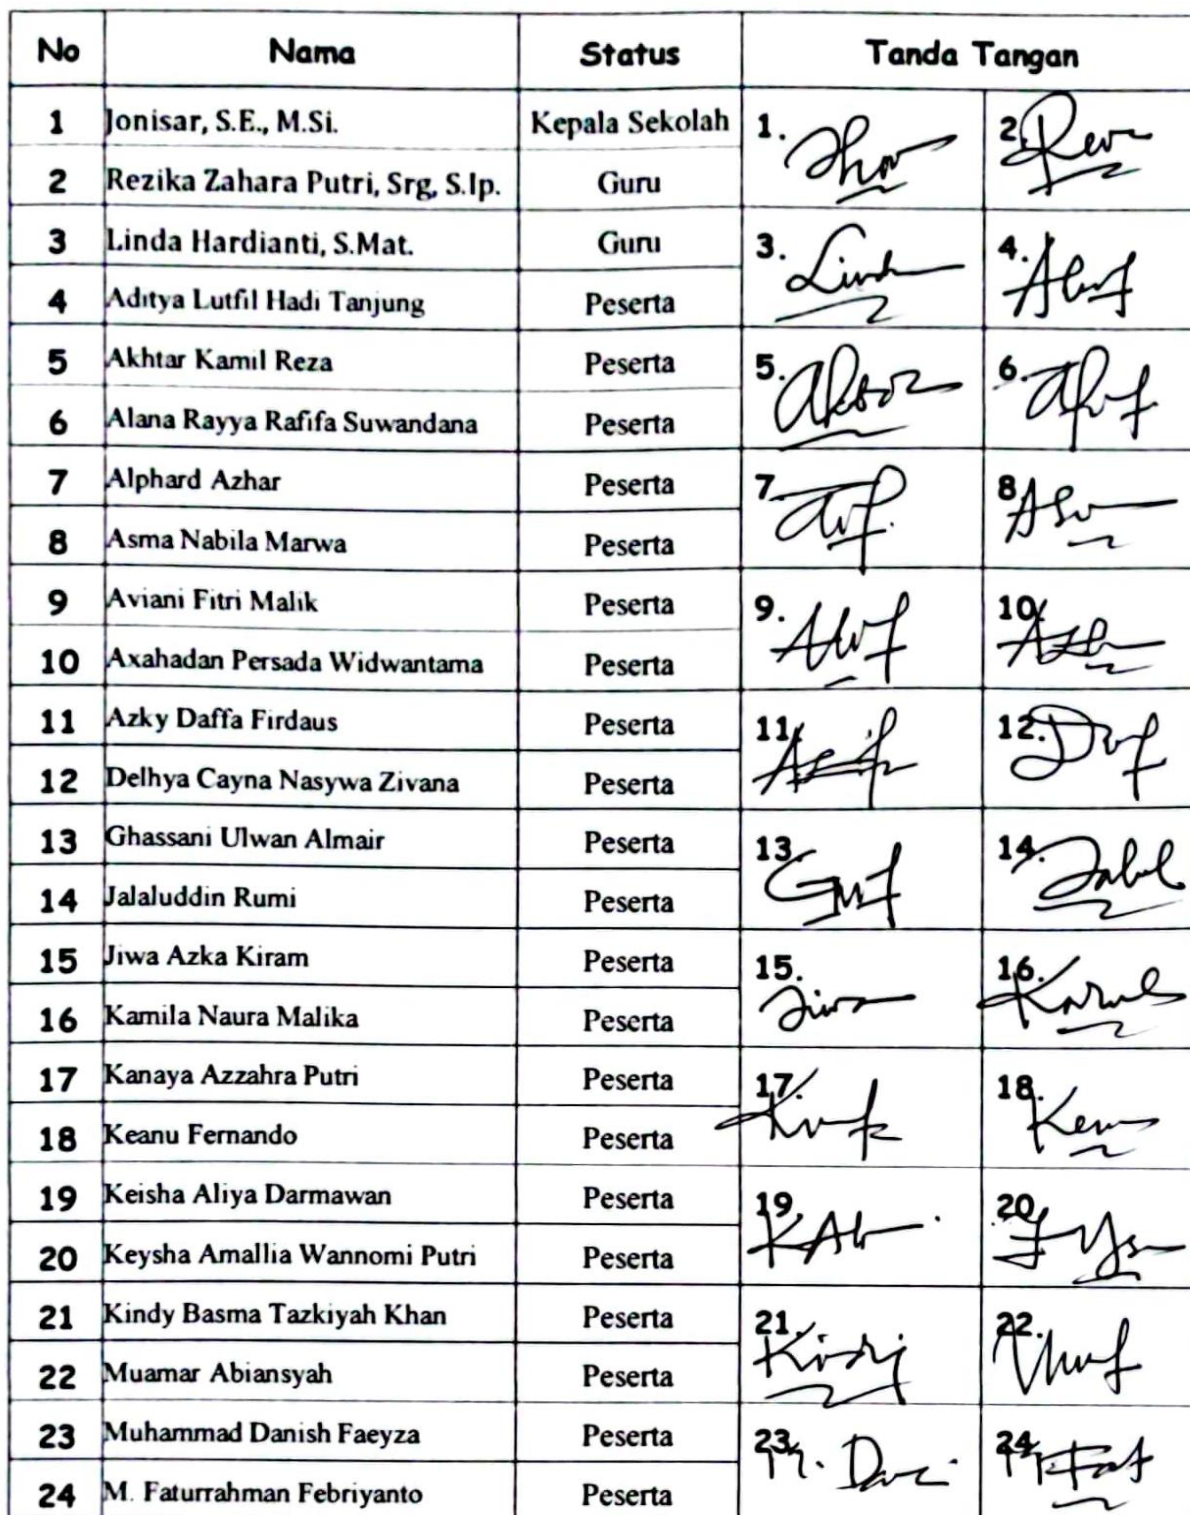 No Nama Status Tanda Tangan
1 Jonisar, S.E., M.Si. Kepala Sekolah 1. 2.
2 Rezika Zahara Putri, Srg, S.Ip. Guru
3 Linda Hardianti, S.Mat. Guru 3. 4.
4 Aditya Lutfil Hadi Tanjung Peserta
5 Akhtar Kamil Reza Peserta 5. 6.
6 Alana Rayya Rafifa Suwandana Peserta
7 Alphard Azhar Peserta 7. 8.
8 Asma Nabila Marwa Peserta
9 Aviani Fitri Malik Peserta 9. 10.
10 Axahadan Persada Widwantama Peserta
11 Azky Daffa Firdaus Peserta 11. 12.
12 Delhya Cayna Nasywa Zivana Peserta
13 Ghassani Ulwan Almair Peserta 13. 14.
14 Jalaluddin Rumi Peserta
15 Jiwa Azka Kiram Peserta 15. 16.
16 Kamila Naura Malika Peserta
17 Kanaya Azzahra Putri Peserta 17. 18.
18 Keanu Fernando Peserta
19 Keisha Aliya Darmawan Peserta 19. 20.
20 Keysha Amallia Wannomi Putri Peserta
21 Kindy Basma Tazkiyah Khan Peserta 21. 22.
22 Muamar Abiansyah Peserta
23 Muhammad Danish Faeyza Peserta 23. 24.
24 M. Faturrahman Febriyanto Peserta